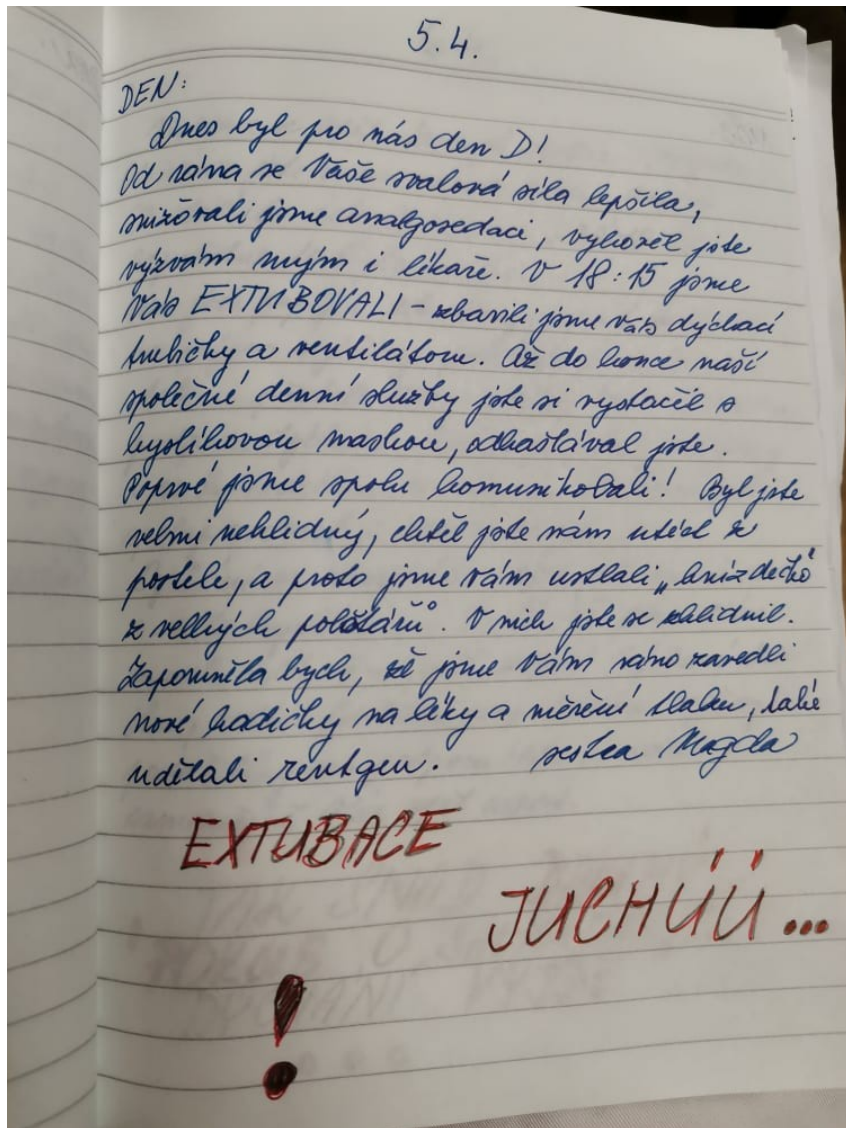 5.4.
DEN:
Dnes byl pro nás den D!
Od rána se Vaše svalová síla lepšila,
snižovali jsme analgosedaci, vyhověl jste
výzvám mým i lékaře. V 18:15 jsme
Vás EXTUBOVALI - zbavili jsme Vás dýchací
trubičky a ventilátoru. Až do konce naší
společné denní služby jste si vystačil s
kyslíkovou maskou, odkašlával jste.
Poprvé jsme spolu komunikovali! Byl jste
velmi neklidný, chtěl jste nám utéct z
postele, a proto jsme Vám ustlali „hnízdečko"
z velkých polštářů. V nich jste se zklidnil.
Zapomněla bych, že jsme Vám ráno zavedli
nové hadičky na léky a měření tlaku, také
udělali rentgen. sestra Magda
EXTUBACE
JUCHÚÚ...
!